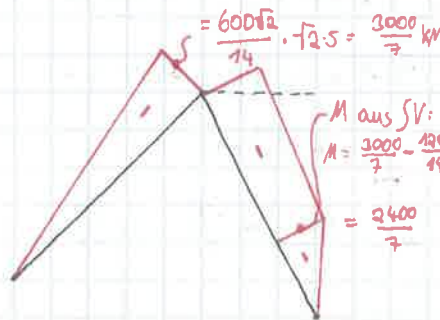 = 600√2/14 · √2·5 = 3000/7 kN
M aus SV:
M = 3000/7 - 12
= 2400/7